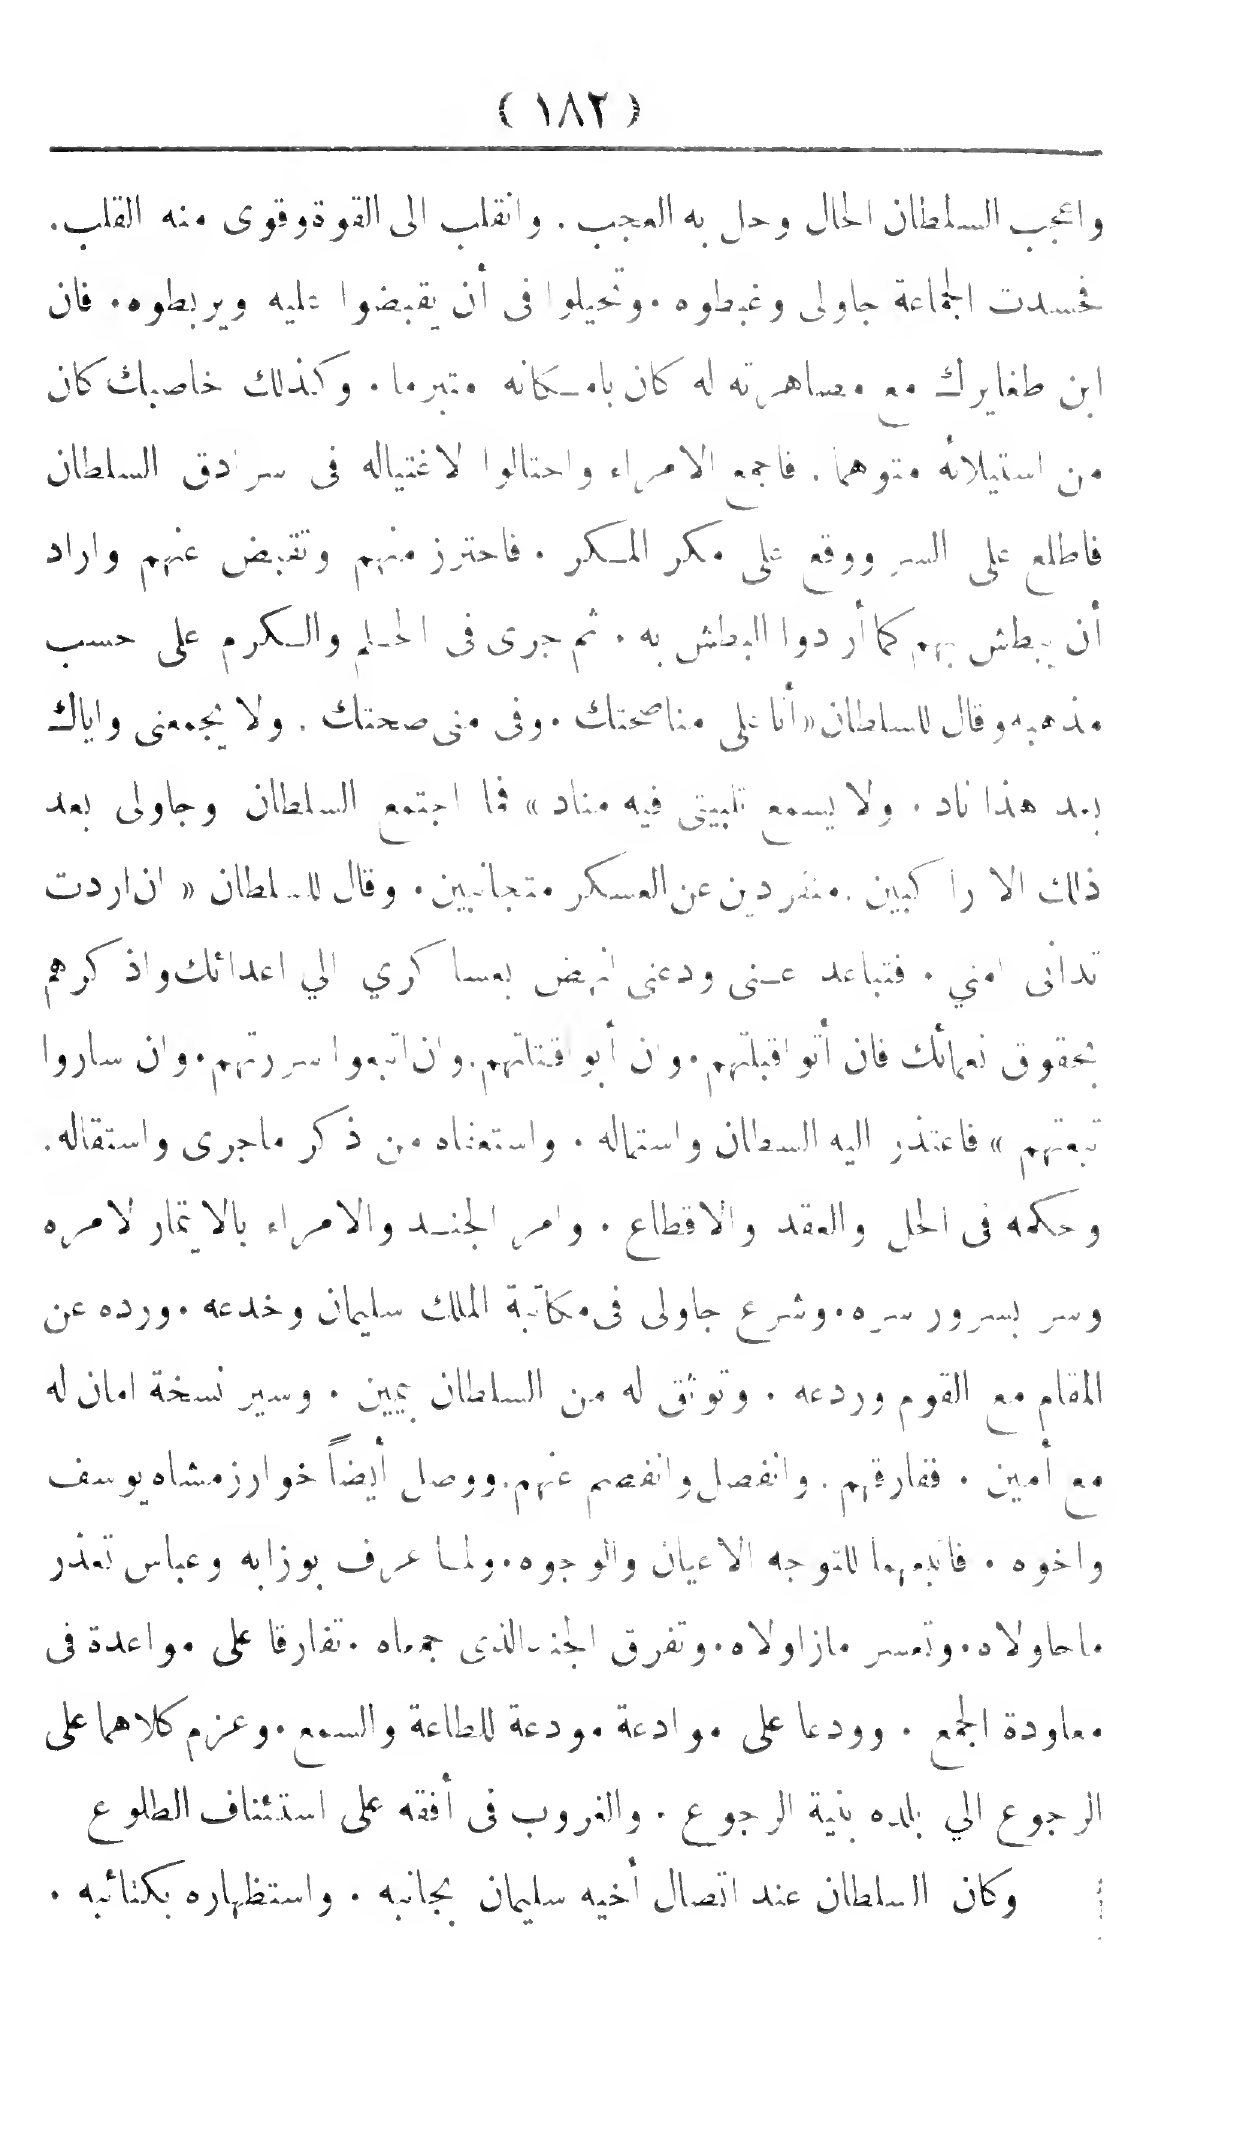 ( ١٨٢ )
واعجب السلطان الحال وحل به العجب . وانقلب الى القوة وقوى منه القلب.
فحسدت الجماعة جاولى وغبطوه . وتحيلوا فى أن يقبضوا عليه ويربطوه. فان
ابن طغايرك مع مصاهرته له كان بامكانه متبرما . وكذلك خاصبك كان
من استيلائه متوهما . فاجمع الامراء واحتالوا لاغتياله فى سرادق السلطان
فاطلع على السر ووقع على مكر المكر . فاحترز منهم وتقبض عنهم واراد
أن يبطش بهم كما أردوا البطش به . ثم جرى فى الحلم والكرم على حسب
مذهبه وقال للسلطان « أنا على مناصحتك . وفى منى صحتك . ولا يجمعنى واياك
بعد هذا ناد . ولا يسمع تلبيتى فيه مناد » فما اجتمع السلطان وجاولى بعد
ذلك الا راكبين . منفردين عن العسكر متجانبين . وقال للسلطان « ان اردت
تدانى امني . فتباعد عنى ودعنى انهض بعساكري الي اعدائك واذكرهم
بحقوق نعمائك فان أتوا قبلتهم . وان أبوا قتلتهم . وان اتبعوا سررتهم . وان ساروا
تبعتهم » فاعتذر اليه السطان واستماله . واستعفاه من ذكر ماجرى واستقاله.
وحكمه فى الحل والعقد والاقطاع . وامر الجند والامراء بالايتمار لامره
وسر بسرور سره . وشرع جاولى فى مكاتبة الملك سليمان وخدعه . ورده عن
المقام مع القوم وردعه . وتوثق له من السلطان بيمين . وسير نسخة امان له
مع أمين . ففارقهم . وانفصل وانفصم عنهم . ووصل أيضاً خوارزمشاه يوسف
واخوه . فاتبعهما للتوجه الاعيان والوجوه . ولما عرف بوزابه وعباس تعذر
ماحاولاه . وتعسر مازاولاه . وتفرق الجند الذى جمعاه . تفارقا على مواعدة فى
معاودة الجمع . وودعا على موادعة مودعة للطاعة والسمع . وعزم كلاهما على
الرجوع الي بلده بنية الرجوع . والغروب فى أفقه على استئناف الطلوع
وكان السلطان عند اتصال أخيه سليمان بجانبه . واستظهاره بكتائبه .